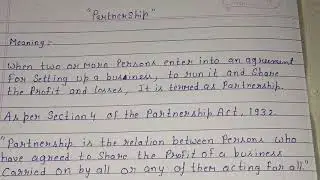 "Partnership"
Meaning:-
When two or more Persons enter into an agreement
For Setting up a business, to run it and Share
the Profit and losses, It is termed as Partnership.
As per Section 4 of the Partnership Act, 1932.
"Partnership is the relation between Persons who
have agreed to Share the Profit of a business
Carried on by all or any of them acting For all."